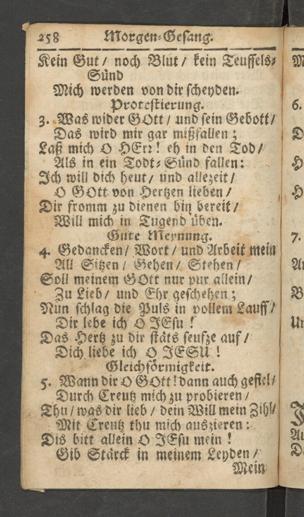 258 Morgen-Gesang.
Kein Gut / noch Blut / kein Teuffels-
Sünd
Mich werden von dir scheyden.
Protestierung.
3. Was wider GOtt / und sein Gebott /
Das wird mir gar mißfallen;
Laß mich O HErr! eh in den Tod /
Als in ein Todt-Sünd fallen:
Ich will dich heut / und allezeit /
O GOtt von Hertzen lieben /
Dir fromm zu dienen bin bereit /
Will mich in Tugend üben.
Gute Meynung.
4. Gedancken / Wort / und Arbeit mein
All Sitzen / Gehen / Stehen /
Soll meinem GOtt nur pur allein /
Zu Lieb / und Ehr geschehen;
Nun schlag die Puls in vollem Lauff /
Dir lebe ich O JEsu!
Das Hertz zu dir stäts seufze auf /
Dich liebe ich O JESU!
Gleichförmigkeit.
5. Wann dir O Gott! dann auch gefiel /
Durch Creutz mich zu probieren /
Thu / was dir lieb / dein Will mein Zihl /
Mit Creutz thu mich auszieren:
Dis bitt allein O JEsu mein!
Gib Stärck in meinem Leyden /
Mein